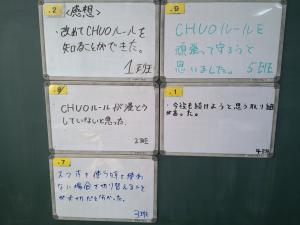 .2
<感想>
・改めてCHUOルールを
知ることができた。
1班
.9
CHUOルールを
頑張って守ろうと
思いました。
5班
CHUOルールが浸とう
していないと思った。
2班
.1
・今後も続けようと思う取り組
があった。
4班
.7
スマホを使う時と使わ
ない場面で切り替えること
が大切だと分かった。
3班